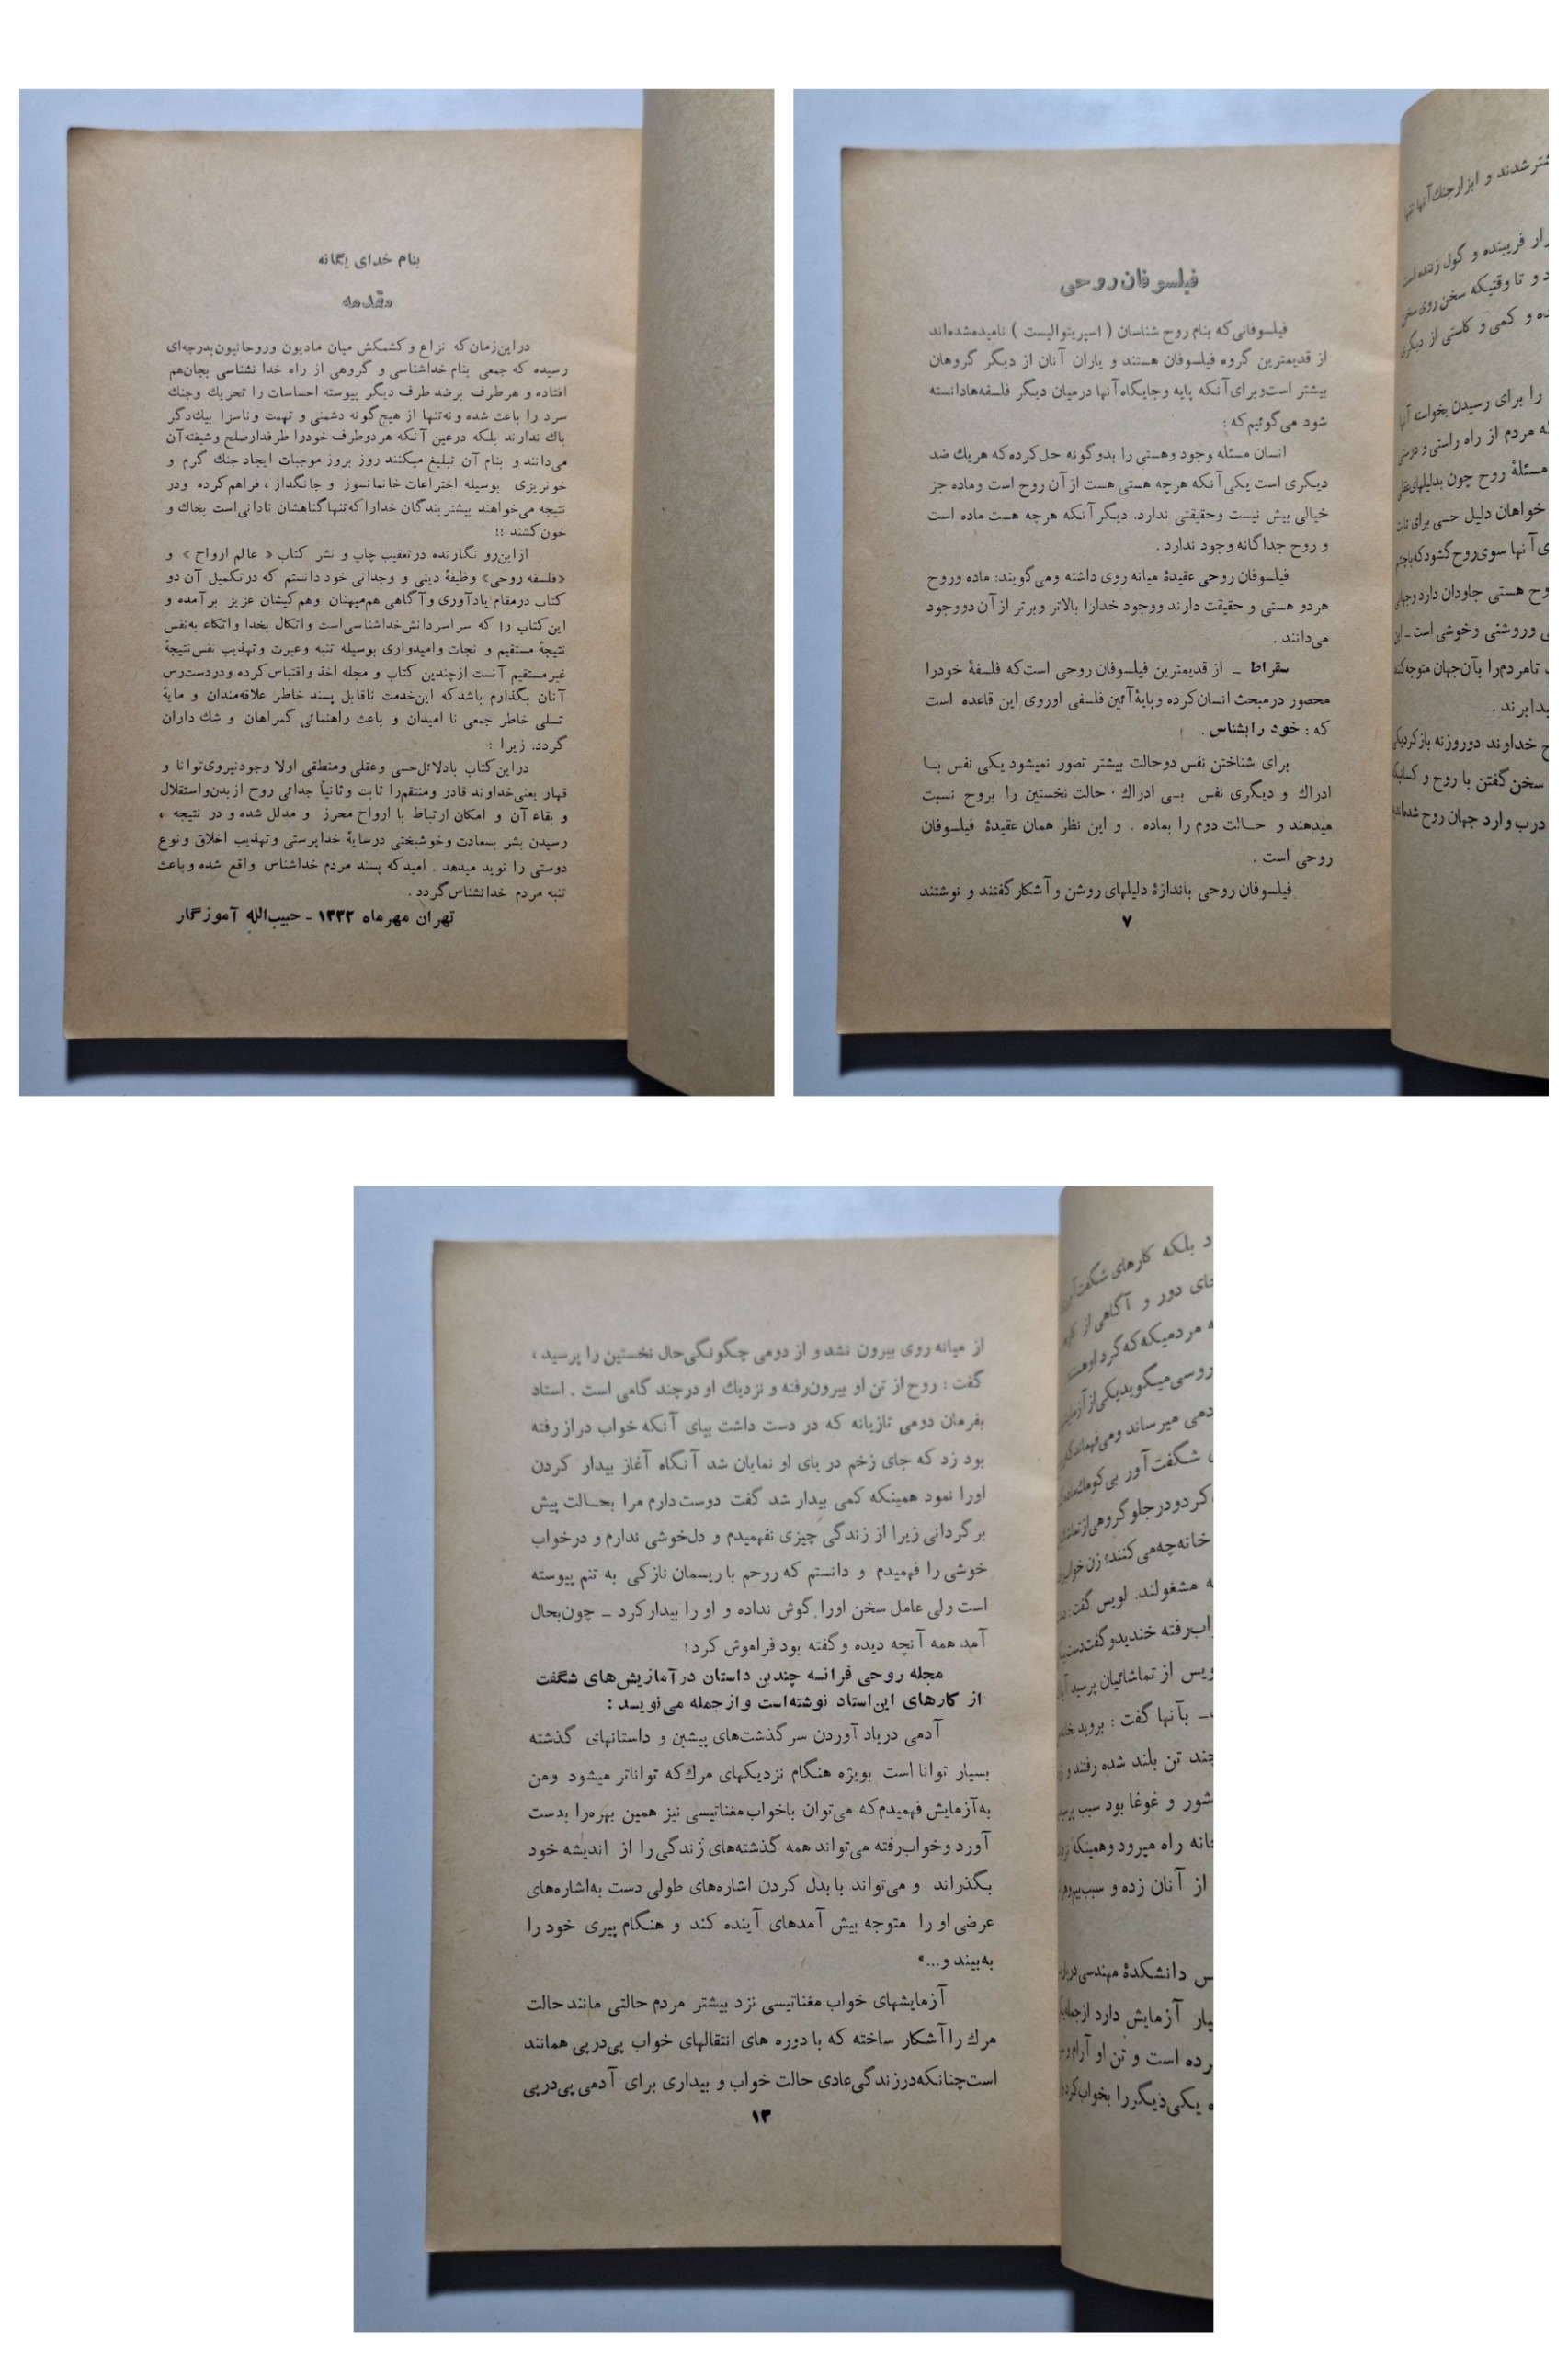 بنام خدای یگانه
مقدمه
دراین‌زمان‌که نزاع و کشمکش میان مادیون وروحانیون‌بدرجه‌ای
رسیده که جمعی بنام خداشناسی و گروهی از راه خدا نشناسی بجان‌هم
افتاده و هرطرف برضد طرف دیگر پیوسته احساسات را تحریك وجنك
سرد را باعث شده و نه‌تنها از هیچ‌گونه دشمنی و تهمت وناسزا بیك‌دگر
باك ندارند بلکه درعین آنکه هردوطرف خودرا طرفدارصلح وشیفته‌آن
می‌دانند و بنام آن تبلیغ میکنند روز بروز موجبات ایجاد جنك گرم و
خونریزی بوسیله اختراعات خانمانسوز و جانگداز ، فراهم‌کرده ودر
نتیجه می‌خواهند بیشتر بندگان خداراکه‌تنهاگناهشان نادانی‌است بخاك و
خون کشند !!
ازاین‌رو نگارنده درتعقیب چاپ و نشر کتاب « عالم ارواح » و
«فلسفه روحی» وظیفهٔ دینی و وجدانی خود دانستم که درتکمیل آن دو
کتاب درمقام یادآوری وآگاهی هم‌میهنان وهم‌کیشان عزیز برآمده و
این‌کتاب را که سراسردانش‌خداشناسی‌است واتکال بخدا واتکاء به‌نفس
نتیجهٔ مستقیم و نجات وامیدواری بوسیله تنبه وعبرت وتهذیب نفس‌نتیجهٔ
غیرمستقیم آنست ازچندین کتاب و مجله اخذ واقتباس‌کرده ودردسترس
آنان بگذارم باشدکه این‌خدمت ناقابل پسند خاطر علاقه‌مندان و مایهٔ
تسلی خاطر جمعی نا امیدان و باعث راهنمائی گمراهان و شك داران
گردد. زیرا :
دراین‌کتاب بادلائل‌حسی وعقلی ومنطقی اولا وجودنیروی‌توانا و
قهار یعنی‌خداوند قادر ومنتقم‌را ثابت وثانیاً جدائی روح ازبدن‌واستقلال
و بقاء آن و امکان ارتباط با ارواح محرز و مدلل شده و در نتیجه ،
رسیدن بشر بسعادت وخوشبختی درسایهٔ خداپرستی وتهذیب اخلاق ونوع
دوستی را نوید میدهد . امیدکه پسند مردم خداشناس واقع شده وباعث
تنبه مردم خدانشناس‌گردد .
تهران مهرماه ۱۳۳۲ - حبیب‌الله آموزگار
فیلسوفان روحی
فیلسوفانی‌که بنام روح شناسان ( اسپریتوالیست ) نامیده‌شده‌اند
از قدیمترین گروه فیلسوفان هستند و یاران آنان از دیگر گروهان
بیشتر است‌وبرای‌آنکه پایه وجایگاه‌آنها درمیان دیگر فلسفه‌هادانسته
شود می‌گوئیم‌که :
انسان مسئله وجود وهستی را بدوگونه حل‌کرده‌که هریك ضد
دیگری است یکی‌آنکه هرچه هستی هست از آن روح است وماده جز
خیالی بیش نیست وحقیقتی ندارد. دیگرآنکه هرچه هست ماده است
و روح جداگانه وجود ندارد .
فیلسوفان روحی عقیدهٔ میانه روی داشته ومی‌گویند: ماده وروح
هردو هستی و حقیقت دارند ووجود خدارا بالاتر وبرتر از آن دووجود
می‌دانند .
سقراط - از قدیمترین فیلسوفان روحی است‌که فلسفهٔ خودرا
محصور درمبحث انسان‌کرده وپایهٔ‌آئین فلسفی اوروی این قاعده است
که : خود رابشناس .
برای شناختن نفس دوحالت بیشتر تصور نمیشود یکی نفس بـا
ادراك و دیگری نفس بـی ادراك . حالت نخستین را بروح نسبت
میدهند و حـالت دوم را بماده . و این نظر همان عقیدهٔ فیلسوفان
روحی است .
فیلسوفان روحی باندازهٔ دلیلهای روشن وآشکارگفتند و نوشتند
۷
شتر شدند و ابزارجنك‌آنها تنها
ار فریبنده و گول زننده‌است
د و تا وقتیکه سخن روی سخن
ده و کمی و کاستی از دیگری
را برای رسیدن بخواسته آنها
ه مردم از راه راستی و درستی
مسئلهٔ روح چون بدلیلهای‌عقلی
خواهان دلیل حسی برای ثابت
ی‌آنها سوی‌روح‌گشودکه‌باچشم
وح هستی جاودان دارد وجهان
ی وروشنی وخوشی است - این
تامردم‌را بآن‌جهان متوجه‌کند
دایرند .
ح خداوند دوروزنه بازکردیکی
سخن گفتن با روح و کسانیکه
درب وارد جهان روح شده‌اند
از میانه روی بیرون نشد و از دومی چگونگی‌حال نخستین را پرسید ،
گفت : روح از تن او بیرون‌رفته و نزدیك او درچند گامی است . استاد
بفرمان دومی تازیانه که در دست داشت بپای آنکه خواب دراز رفته
بود زد که جای زخم در پای او نمایان شد آنگاه آغاز بیدار کردن
اورا نمود همینکه کمی بیدار شد گفت دوست‌دارم مرا بحـالت پیش
برگردانی زیرا از زندگی چیزی نفهمیدم و دل‌خوشی ندارم و درخواب
خوشی را فهمیدم و دانستم که روحم با ریسمان نازکی به تنم پیوسته
است ولی عامل سخن اورا گوش نداده و او را بیدارکرد - چون‌بحال
آمد همه آنچه دیده وگفته بود فراموش کرد!
مجله روحی فرانسه چندین داستان درآمازیش‌های شگفت
از کارهای این‌استاد نوشته‌است وازجمله می‌نویسد :
آدمی دریاد آوردن سرگذشت‌های پیشین و داستانهای گذشته
بسیار توانا است بویژه هنگام نزدیکهای مرك‌که تواناتر میشود ومن
به‌آزمایش فهمیدم‌که می‌توان باخواب‌مغناتیسی نیز همین بهره‌را بدست
آورد وخواب‌رفته می‌تواند همه گذشته‌های زندگی را از اندیشه خود
بگذراند و می‌تواند با بدل کردن اشاره‌های طولی دست به‌اشاره‌های
عرضی او را متوجه پیش آمدهای آینده کند و هنگام پیری خود را
به‌بیند و...»
آزمایشهای خواب مغناتیسی نزد بیشتر مردم حالتی مانند حالت
مرك را آشکار ساخته که با دوره های انتقالهای خواب پی‌درپی همانند
است‌چنانکه‌درزندگی‌عادی حالت خواب و بیداری برای آدمی پی‌درپی
۱۳
د بلکه کارهای شگفت‌آور
جای دور و آگاهی از
ه مردمیکه که گرد اوهستند
روسی میگویدیکی‌ازآزمایش
دمی میرساند ومی‌فهماندکه
شگفت آور بی‌کومك‌ماده
کردودرجلوگروهی‌ازتماشا
خانه‌چه‌می‌کنند؟ زن‌خواب
ه مشغولند. لویس گفت:
اب‌رفته خندیدوگفت‌دست
ویس از تماشائیان پرسید آیا
ـ بآنها گفت : بروید بخانه
چند تن بلند شده رفتند و
شور و غوغا بود سبب
انه راه میرود وهمینکه
از آنان زده و سبب
س دانشکدهٔ مهندسی‌درپاریس
یار آزمایش دارد ازجمله
رده است و تن او آرام
ه یکی دیگررا بخواب‌کرد